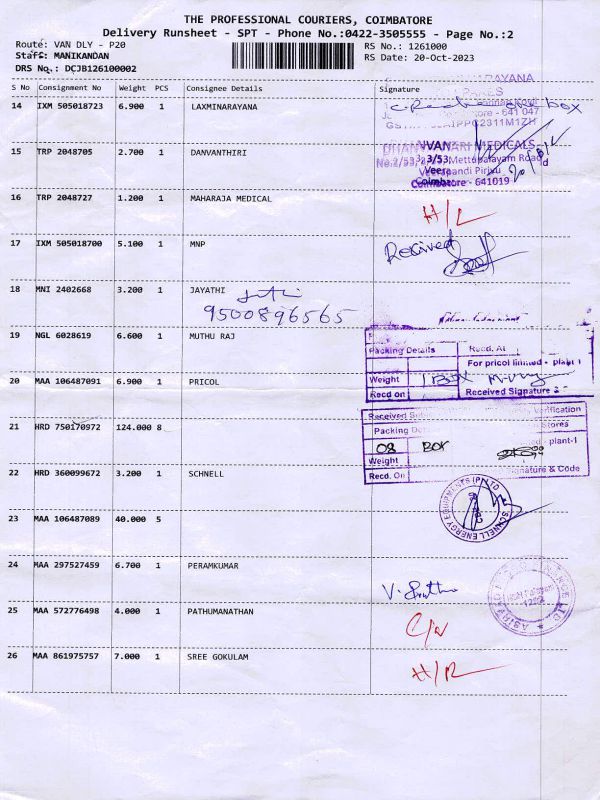 THE PROFESSIONAL COURIERS, COIMBATORE
Delivery Runsheet - SPT - Phone No.:0422-3505555 - Page No.:2
Route: VAN DLY - P20
RS No.: 1261000
Staff: MANIKANDAN
RS Date: 20-Oct-2023
DRS No.: DCJB126100002
S No Consignment No Weight PCS Consignee Details Signature
14 IXM 505018723 6.900 1 LAXMINARAYANA
box
641 047
15 TRP 2048705 2.700 1 DANVANTHIRI
MEDICALS
Mettupalayam Road
Coimbatore - 641019
16 TRP 2048727 1.200 1 MAHARAJA MEDICAL
H/L
17 IXM 505018700 5.100 1 MNP
Received
18 MNI 2402668 3.200 1 JAYATHI
9500896565
19 NGL 6028619 6.600 1 MUTHU RAJ
Packing Details Recd. At
For pricol limited - plant 1
20 MAA 106487091 6.900 1 PRICOL
Weight 1 Box
Recd on Received Signature
21 HRD 750170972 124.000 8
Verification
Stores
08 Box
- plant-1
Weight
Recd. On Signature & Code
22 HRD 360099672 3.200 1 SCHNELL
SCHNELL ENERGY EQUIPMENTS (P) LTD
23 MAA 106487089 40.000 5
24 MAA 297527459 6.700 1 PERAMKUMAR
25 MAA 572776498 4.000 1 PATHUMANATHAN
26 MAA 861975757 7.000 1 SREE GOKULAM
H/R